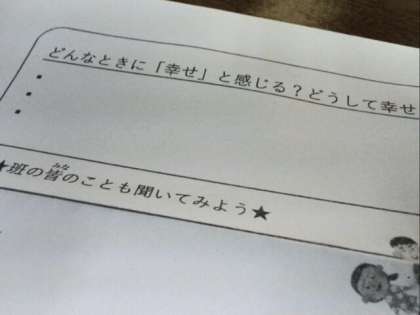 どんなときに「幸せ」と感じる？どうして幸せ
・
・
・
★班の皆のことも聞いてみよう★